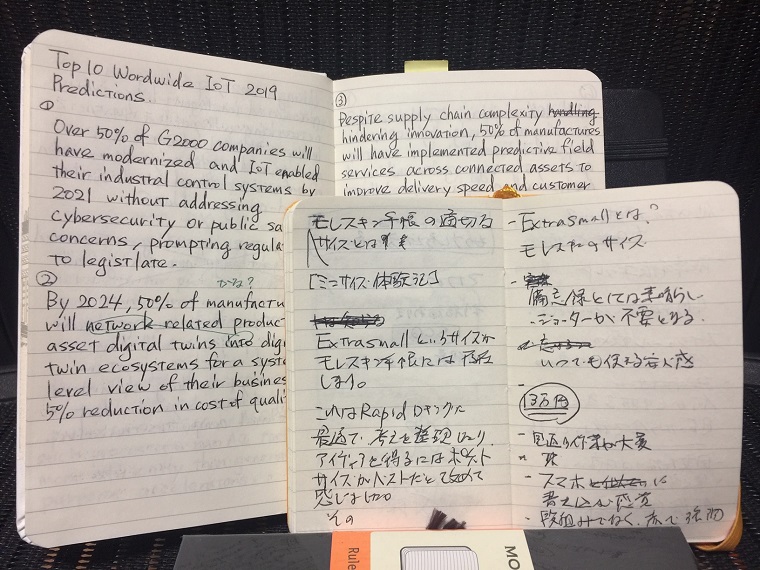 Top 10 Wordwide IoT 2019
Predictions.
①
Over 50% of G2000 companies will
have modernized and IoT enabled
their industral control systems by
2021 without addressing
cybersecurity or public sa
concerns, prompting regula
to legistlate.
②
By 2024, 50% of manufactu
will network related produc
asset digital twins into dig
twin ecosystems for a syst
level view of their busines
5% reduction in cost of quali
③
Despite supply chain complexity handling
hindering innovation, 50% of manufactures
will have implemented predictive field
services across connected assets to
improve delivery speed and customer
モレスキン手帳の適切な
サイズとは
[ミニサイズ体験記]
Extrasmallというサイズが
モレスキン手帳には存在
します。
これはRapidロギングに
最適で、考えを整理したり、
アイディアを得るにはポケット
サイズがベストだと改めて
感じました。
その
- Extrasmallとは?
モレスキンのサイズ
備忘録としては素晴らし
いつでも使える安心感
13万円
- スマホ に
書き込む感覚
Rule
MO